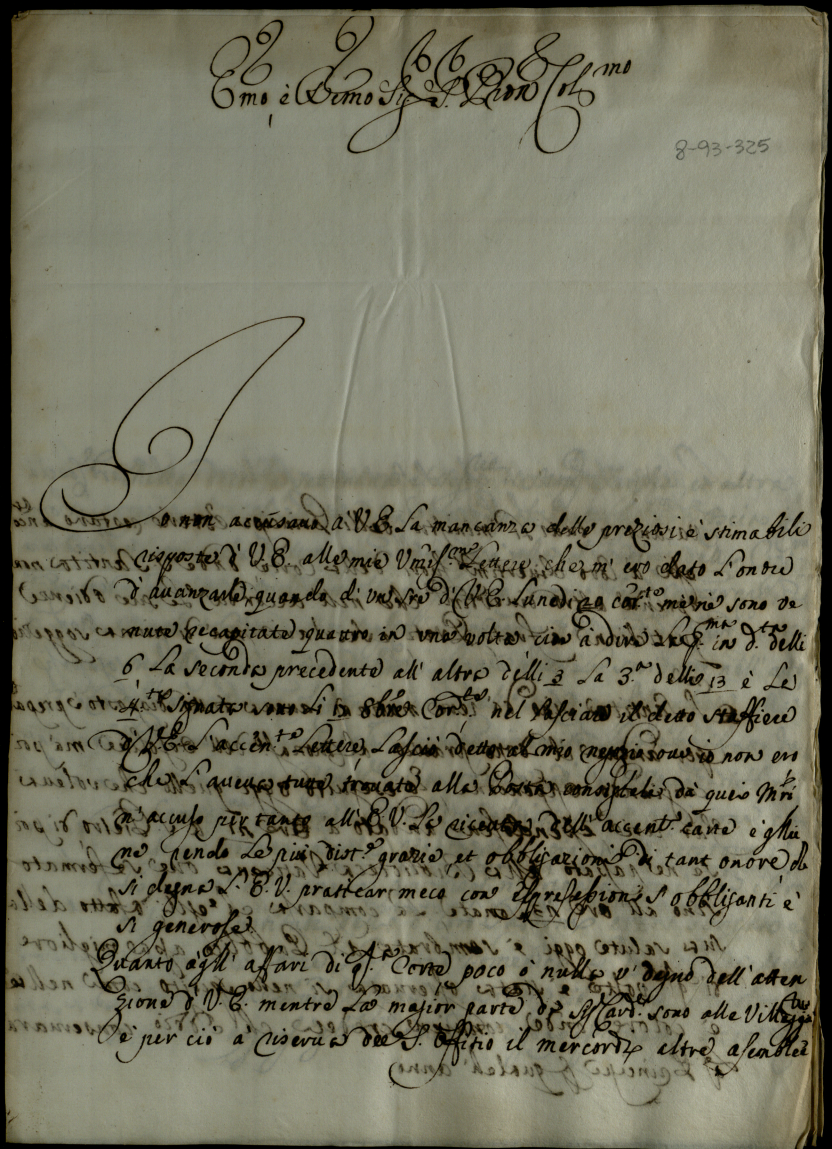 Emo è Rmo Sig.r P.ron Col.mo
8-93-325
Io non accusavo à V.E. La mancanza delle preziosi è stimabili
risposte d' V.E. alle mie Umiss.me Lettere che m' ero dato L'onore
d' avanzarle, quando d' V.E. Lunedi 20 cor.te me ne sono ve
nute recapitate quatro in una volta cioè à dire La p.ma in d.ta delli
6 La seconda precedente all' altra delli 2 La 3.a delli 13 è Le
4.te signate sono Li 8bre Cor.te nel lasciare il detto staffiere
d' V.E. L'accen.te Lettere Lasciò detto al mio non ero
che L'aveva tutte trovate alla Posta da quei M.ri
m' accuso per tanto all' E.V. La ricevuta dell' accent.e carte è gliu
ne rendo Le più dist.e grazie et obbligazioni di tant' onore che
si degna L' E.V. pratticar meco con espressioni sì obbliganti è
sì generose
Quanto agl' affari di q.ta Corte poco ò nulla v' è degno dell' atten
zione d' V.E. mentre La maggior parte de' Sig.i Card.i sono alle Ville
è per ciò à riserva del S. Offitio il mercordì altre asemblee